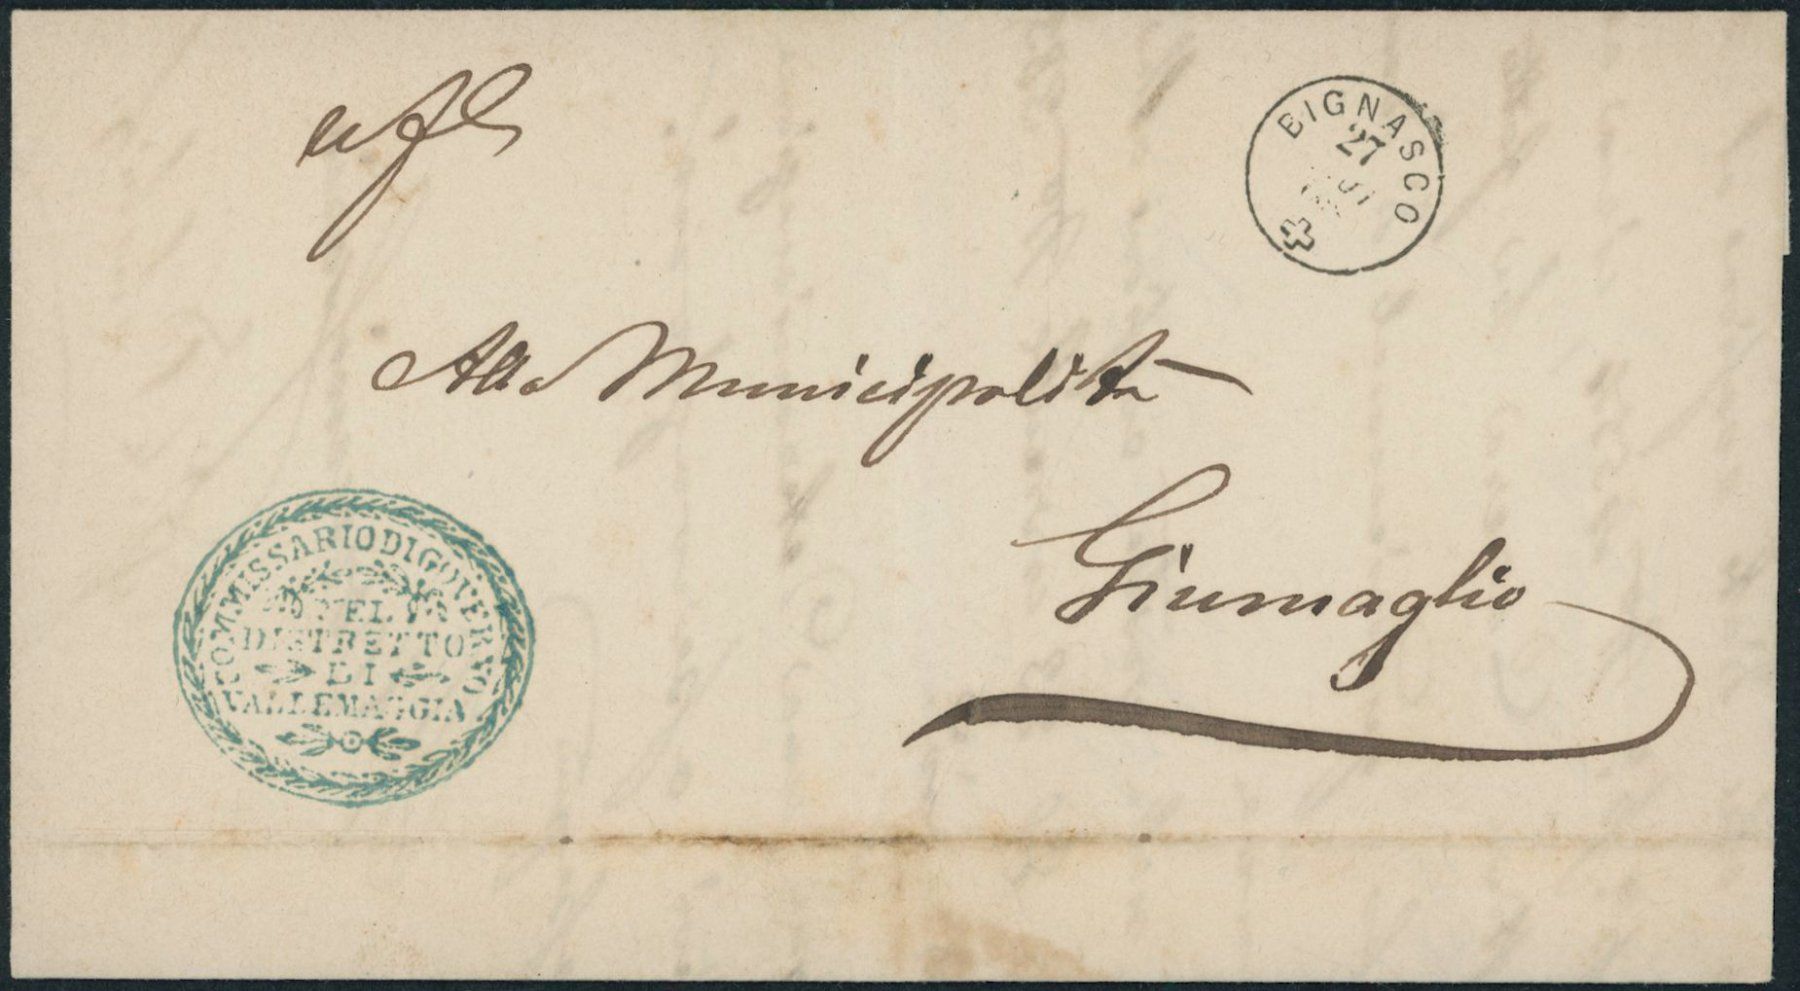 uffo
BIGNASCO
27
Alla Municipalità
Giumaglio
COMMISSARIO DI GOVERNO
DEL
DISTRETTO
DI
VALLEMAGGIA